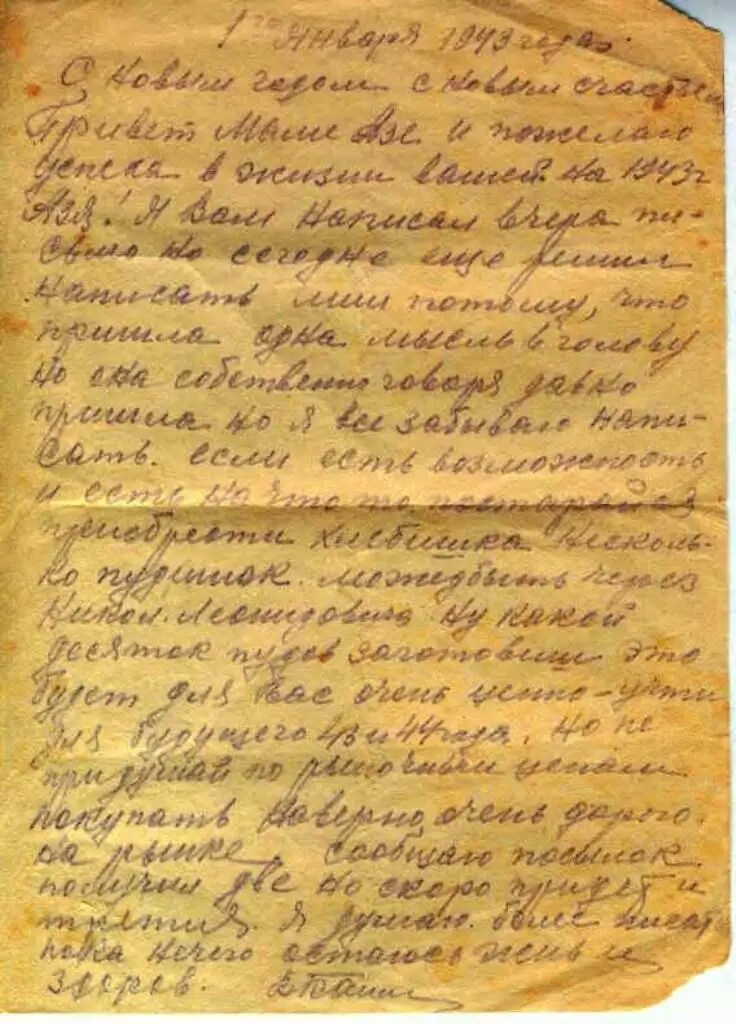 1го Января 1943 года.
С Новым годом с новым счастьем
Привет Маме Азе и пожелаю
успеха в жизни вашей на 1943 г
Азя! Я Вам написал вчера пи-
сьмо но сегодня еще решил
написать лиш потому, что
пришла одна мысль в голову
но она собственно говоря давно
пришла но я все забываю напи-
сать. если есть возможность
и есть на что то постарайся
приобрести хлебишка несколь-
ко пудишок. можедбыть через
Никол. Леонидовича ну какой
десяток пудов заготовиш это
будет для Вас очень ценно-учти
для будущего 43 и 44 года. Но не
придумай по рыночным ценам
покупать наверно очень дорого.
на рынке, сообщаю посылок
получил две но скоро придет и
третия. Я думаю. боле писат
пока нечего остаюсь жив и
здоров.